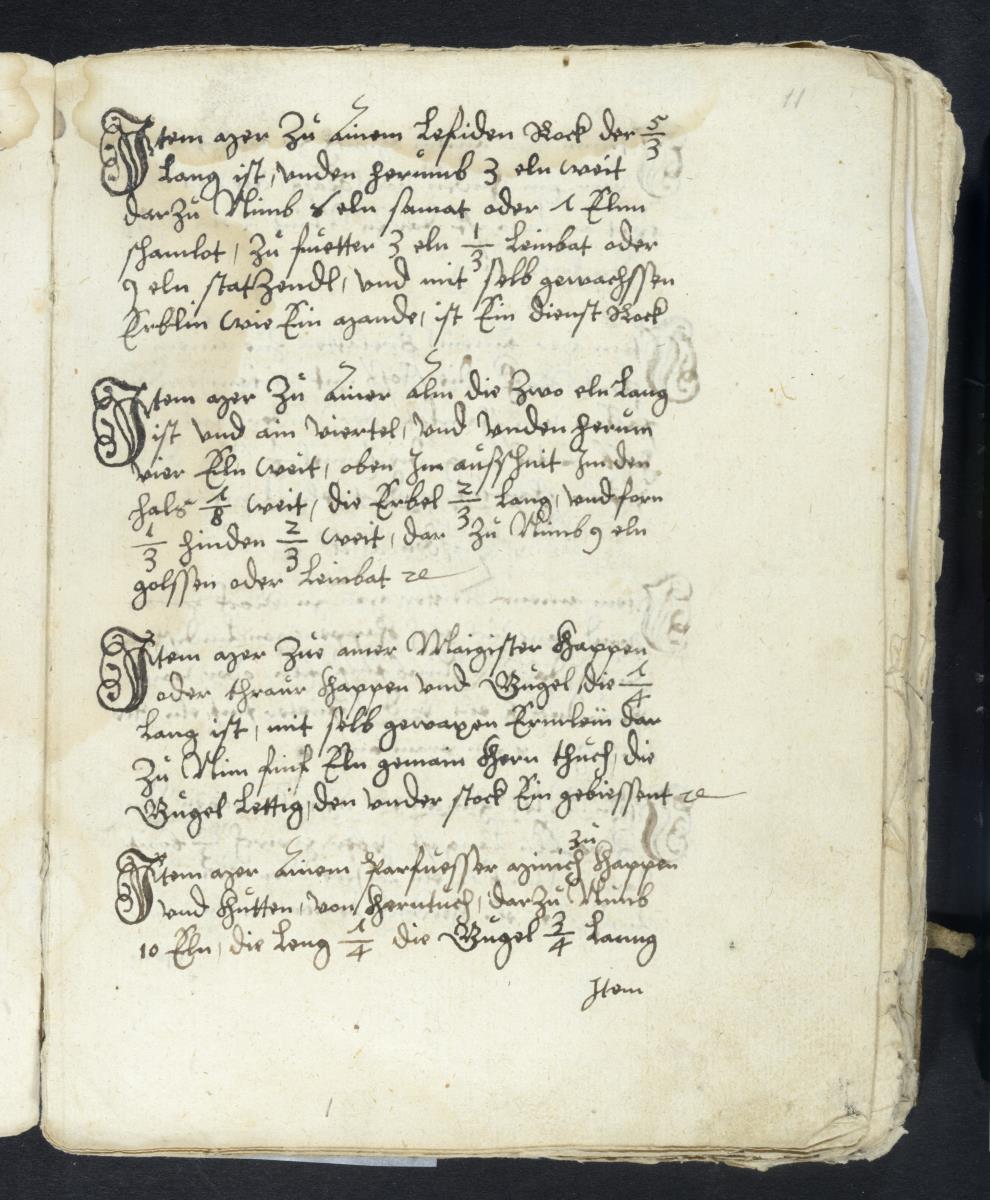 11
Item mer zu Ainem Lesiden Rock der 5/3
Lang ist, vnden herumb 3 eln weit
darzu Nimb 8 eln samat oder 1 Elnn
schamlot, zu fuetter 3 eln 1/3 Leinbat oder
9 eln statzendl, vnd mit selb gewachssen
Erblin wie Ein mande, ist Ein dienst Rock
Item mer zu Ainer Alm die zwo eln Lang
ist vnd ain viertel, vnd vnden herum
vier Eln weit, oben Im aufschnit Inden
hals 1/8 weit, die Erbel 2/3 Lang, vnd forn
1/3 hinden 2/3 weit, dar zu Nimb 9 eln
golssen oder Leinbat ꝛc
Item mer zue ainer Maigister Kappen
oder thraur Kappen vnd Gugel die 1/4
Lang ist, mit selb gewaxen Ermlein dar
zu Nim finf Eln gemain Hern thuch, die
Gugel Lettig, den vnder stock Ein gebiessent ꝛc
zu
Item mer Ainem Parfuesser minich Kappen
vnd Kutten, von Herntuch, darzu Nimb
10 Eln, die Leng 1/4 die Gugel 3/4 Lanng
Item